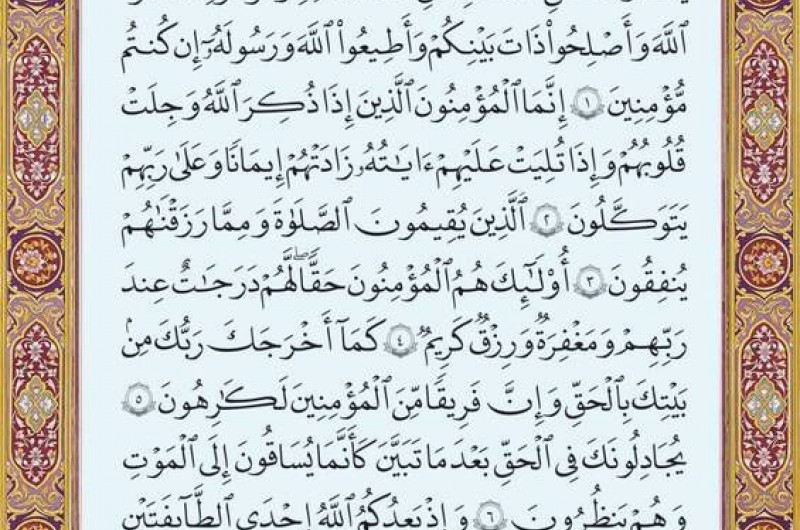 ٱللَّهَ وَأَصْلِحُوا۟ ذَاتَ بَيْنِكُمْ وَأَطِيعُوا۟ ٱللَّهَ وَرَسُولَهُۥٓ إِن كُنتُم
مُّؤْمِنِينَ ١ إِنَّمَا ٱلْمُؤْمِنُونَ ٱلَّذِينَ إِذَا ذُكِرَ ٱللَّهُ وَجِلَتْ
قُلُوبُهُمْ وَإِذَا تُلِيَتْ عَلَيْهِمْ ءَايَٰتُهُۥ زَادَتْهُمْ إِيمَٰنًا وَعَلَىٰ رَبِّهِمْ
يَتَوَكَّلُونَ ٢ ٱلَّذِينَ يُقِيمُونَ ٱلصَّلَوٰةَ وَمِمَّا رَزَقْنَٰهُمْ
يُنفِقُونَ ٣ أُو۟لَٰٓئِكَ هُمُ ٱلْمُؤْمِنُونَ حَقًّا ۚ لَّهُمْ دَرَجَٰتٌ عِندَ
رَبِّهِمْ وَمَغْفِرَةٌ وَرِزْقٌ كَرِيمٌ ٤ كَمَآ أَخْرَجَكَ رَبُّكَ مِنۢ
بَيْتِكَ بِٱلْحَقِّ وَإِنَّ فَرِيقًا مِّنَ ٱلْمُؤْمِنِينَ لَكَٰرِهُونَ ٥
يُجَٰدِلُونَكَ فِى ٱلْحَقِّ بَعْدَ مَا تَبَيَّنَ كَأَنَّمَا يُسَاقُونَ إِلَى ٱلْمَوْتِ
وَهُمْ يَنظُرُونَ ٦ وَإِذْ يَعِدُكُمُ ٱللَّهُ إِحْدَى ٱلطَّآئِفَتَيْنِ